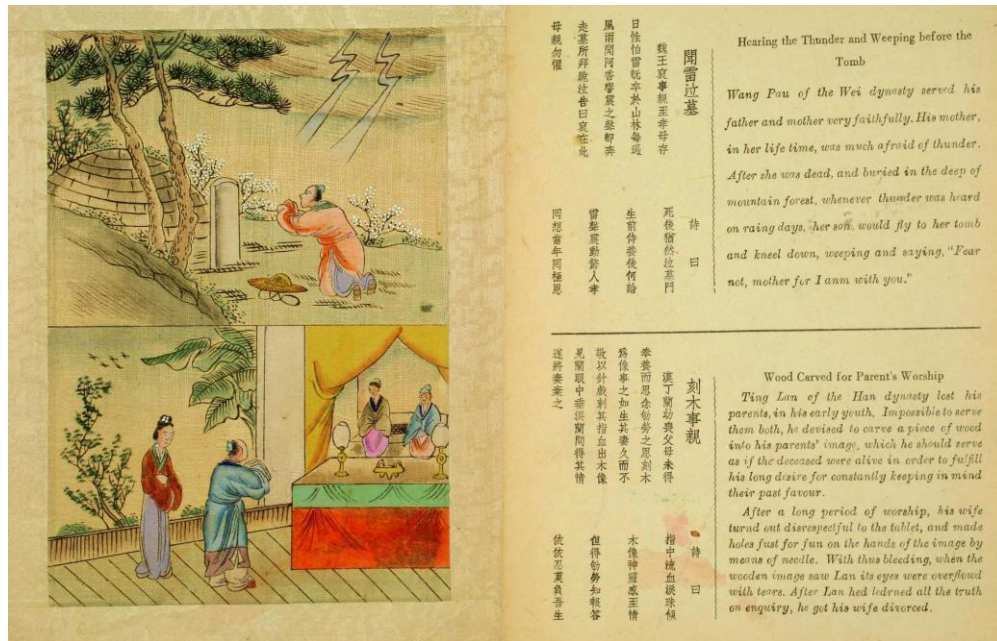 Hearing the Thunder and Weeping before the
Tomb
Wang Pau of the Wei dynasty served his
father and mother very faithfully. His mother,
in her life time, was much afraid of thunder.
After she was dead, and buried in the deep of
mountain forest, whenever thunder was heard
on raing days, her son, would fly to her tomb
and kneel down, weeping and saying, "Fear
not, mother for I anm with you."
聞雷泣墓
魏王裒事親至孝母存
日性怕雷既卒於山林每遇
風雨聞阿香響震之聲即奔
走墓所拜跪泣告曰裒在此
母親勿懼
詩曰
死後猶然泣墓門
生前侍養後何論
雷聲震動驚人孝
想當年極恩
Wood Carved for Parent's Worship
Ting Lan of the Han dynasty lost his
parents, in his early youth. Impossible to serve
them both, he devised to carve a piece of wood
into his parents' image, which he should serve
as if the deceased were alive in order to fulfill
his long desire for constantly keeping in mind
their past favour.
After a long period of worship, his wife
turnd out disrespectful to the tablet, and made
holes fust for fun on the hands of the image by
means of needle. With thus bleeding, when the
wooden image saw Lan its eyes were overflowd
with tears. After Lan hed ledrned all the truth
on enquiry, he got his wife divorced.
刻木事親
漢丁蘭幼喪父母未得
奉養而思念劬勞之恩刻木
為像事之如生其妻久而不
敬以針戲刺其指血出木像
見蘭眼中垂淚蘭問得其情
遂將妻棄之
詩曰
指中流血淚珠傾
木像神靈感至情
但得劬勞知報答
忍莫負吾生